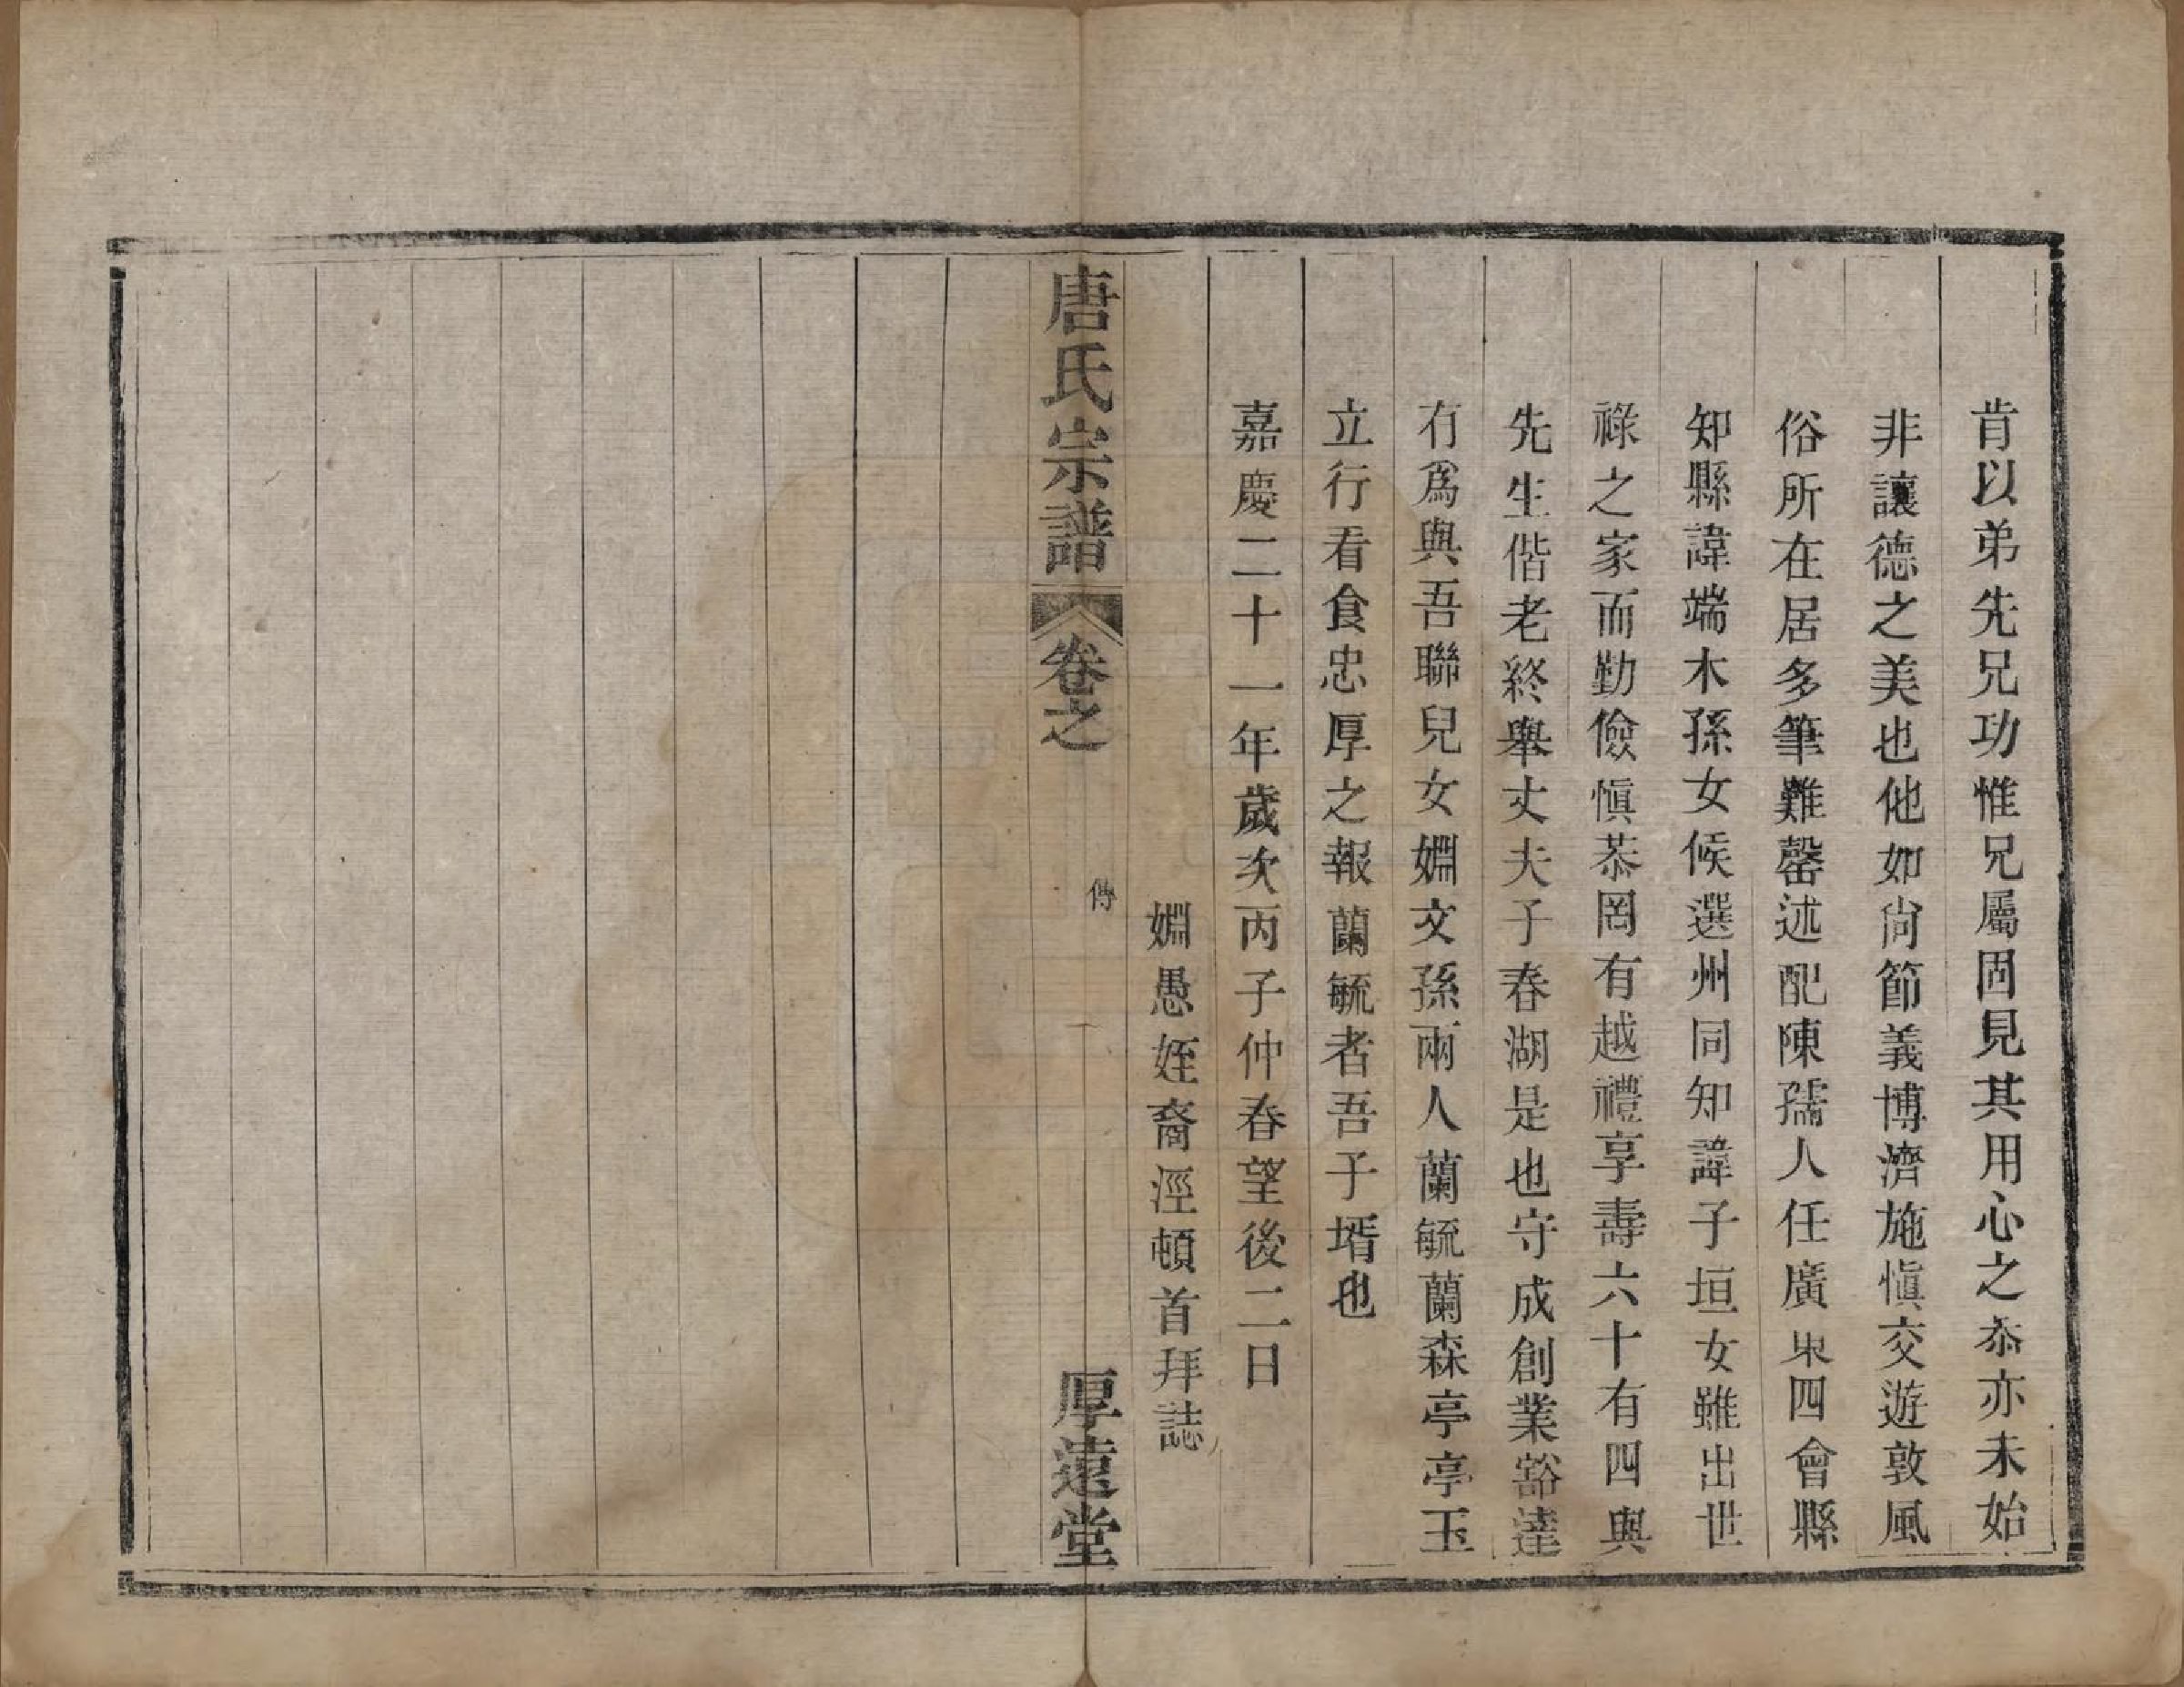 肯以弟先兄功惟兄屬固見其用心之忝亦未始
非讓德之美也他如尙節義博濟施愼交遊敦風
俗所在居多筆難罄述配陳孺人任廣東四會縣
知縣諱端木孫女候選州同知諱子垣女雖出世
祿之家而勤儉愼恭罔有越禮享壽六十有四與
先生偕老終舉丈夫子春湖是也守成創業豁達
有爲與吾聯兒女婣文孫兩人蘭毓蘭森亭亭玉
立行看食忠厚之報蘭毓者吾子壻也
嘉慶二十一年歲次丙子仲春望後二日
婣愚姪裔涇頓首拜誌
唐氏宗譜 卷之 傳 厚遠堂